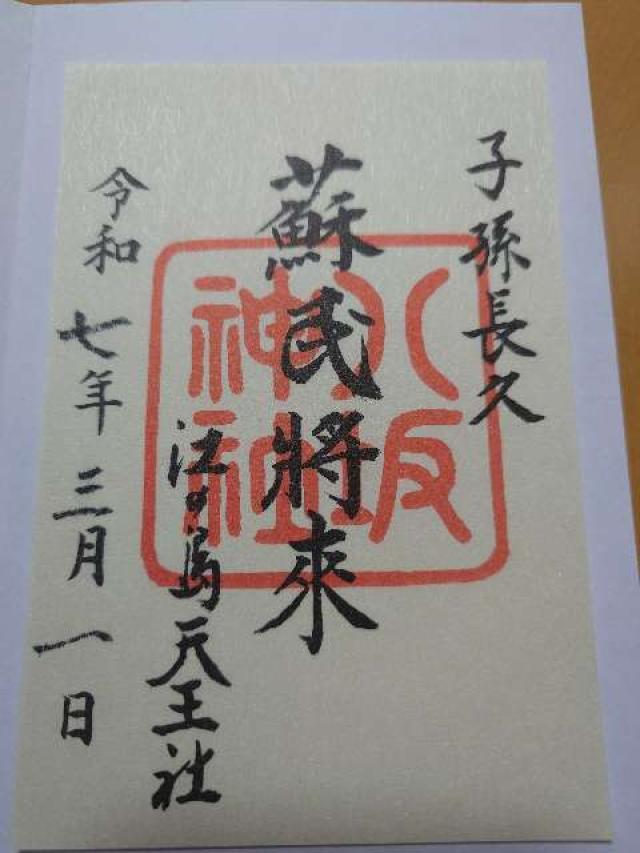 子孫長久
蘇民將來
江の島天王社
令和七年三月一日
八坂
神社